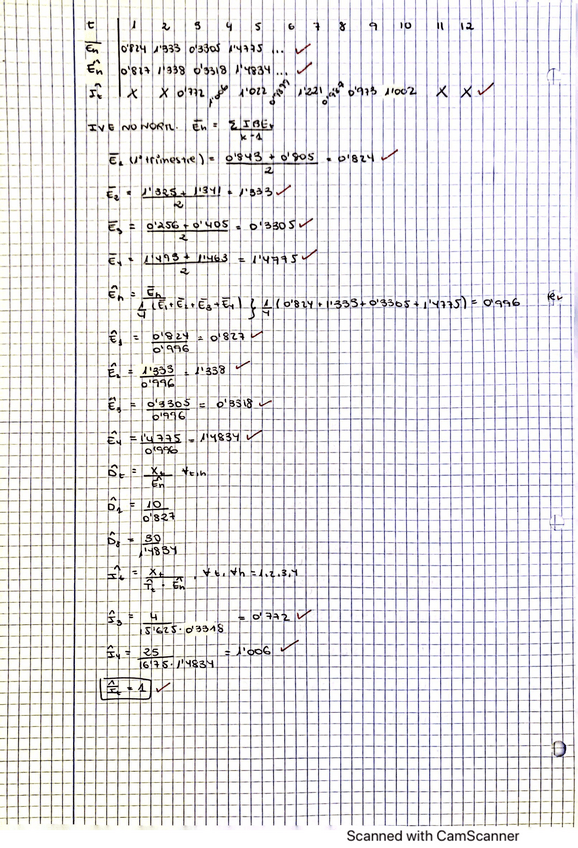 t 1 2 3 4 5 6 7 8 9 10 11 12
Ēn 0'824 1'333 0'3305 1'4775 ... ✓
Ên 0'827 1'338 0'3318 1'4834 ... ✓
Ît X X 0'772 1'006 1'022 1'221 0'973 1'002 X X ✓
IVE NO NORM. Ēn = Σ IBE / k-1
Ē1 (1º trimestre) = 0'843 + 0'805 / 2 = 0'824 ✓
Ē2 = 1'325 + 1'341 / 2 = 1'333 ✓
Ē3 = 0'256 + 0'405 / 2 = 0'3305 ✓
Ē4 = 1'493 + 1'463 / 2 = 1'4795 ✓
Ên = Ēn / 1/4 (Ē1 + Ē2 + Ē3 + Ē4) } 1/4 (0'824 + 1'333 + 0'3305 + 1'4775) = 0'996
Ê1 = 0'824 / 0'996 = 0'827 ✓
Ê2 = 1'333 / 0'996 = 1'338 ✓
Ê3 = 0'3305 / 0'996 = 0'3318 ✓
Ê4 = 1'4775 / 0'996 = 1'4834 ✓
D̂t = Xt / Ên ∀t,h
D̂1 = 10 / 0'827
= 30 / 1'4834
Ît = Xt / T̂t · Ên , ∀t, ∀h = 1,2,3,4
Î3 = 4 / 15'625 · 0'3318 = 0'772 ✓
Î4 = 25 / 16'75 · 1'4834 = 1'006 ✓
Ît = 1 ✓
Scanned with CamScanner